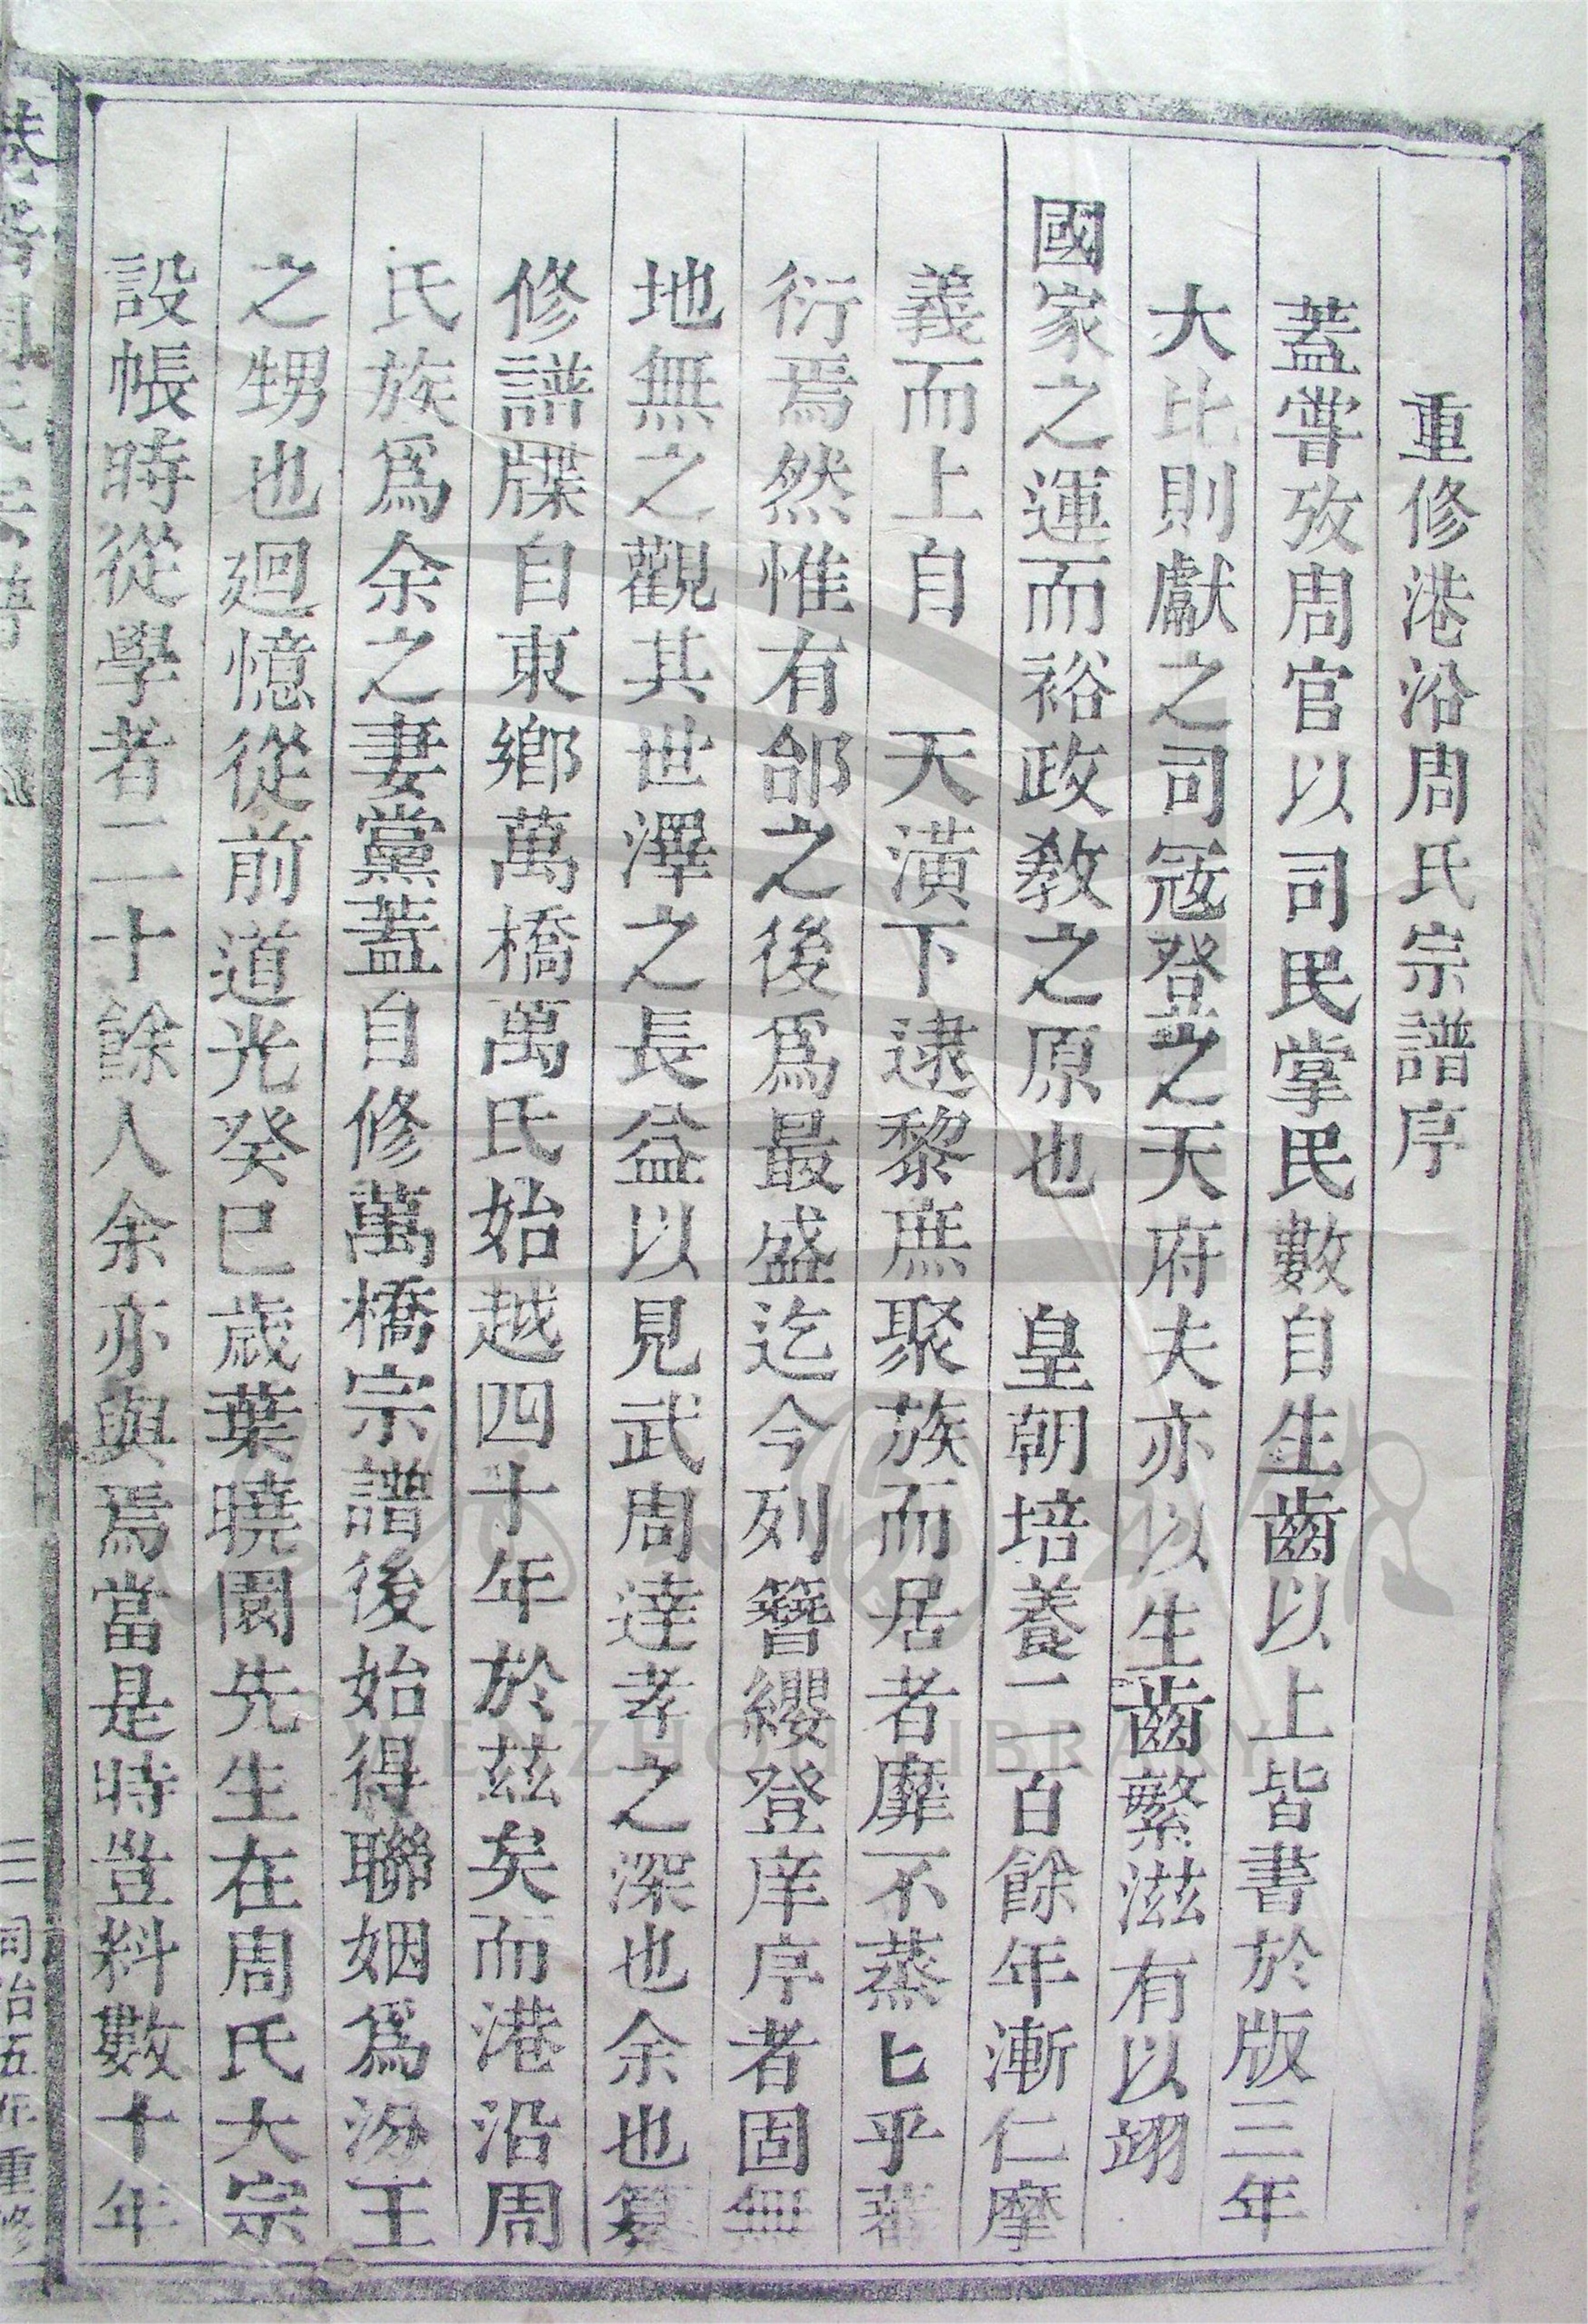 重修港沿周氏宗譜序
蓋嘗攷周官以司民掌民數自生齒以上皆書於版三年
大比則獻之司寇登之天府夫亦以生齒繁滋有以翊
國家之運而裕政教之原也 皇朝培養二百餘年漸仁摩
義而上自 天潢下逮黎庶聚族而居者靡不蒸匕乎蕃
衍焉然惟有郃之後爲最盛迄今列簪纓登庠序者固無
地無之觀其世澤之長益以見武周達孝之深也余也纂
修譜牒自東鄉萬橋萬氏始越四十年於茲矣而港沿周
氏族爲余之妻黨蓋自修萬橋宗譜後始得聯姻爲汾王
之甥也廻憶從前道光癸巳歲葉曉園先生在周氏大宗
設帳時從學者二十餘人余亦與焉當是時豈料數十年
周氏宗譜
三 同治五年重修
WENZHOU LIBRARY